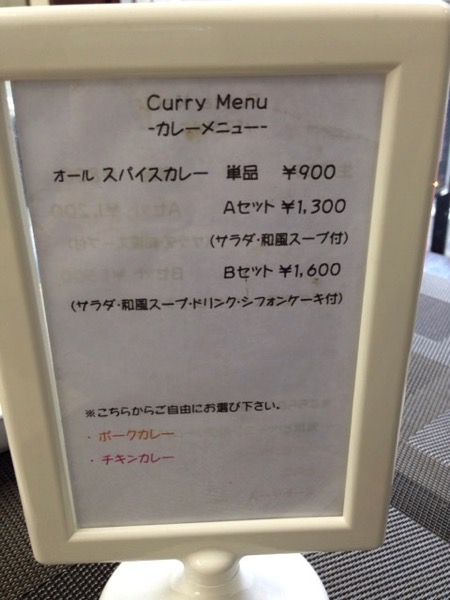 Curry Menu
-カレーメニュー-
オール スパイスカレー 単品 ￥900
Aセット ￥1,300
(サラダ・和風スープ付)
Bセット ￥1,600
(サラダ・和風スープ・ドリンク・シフォンケーキ付)
※こちらからご自由にお選び下さい。
・ポークカレー
・チキンカレー